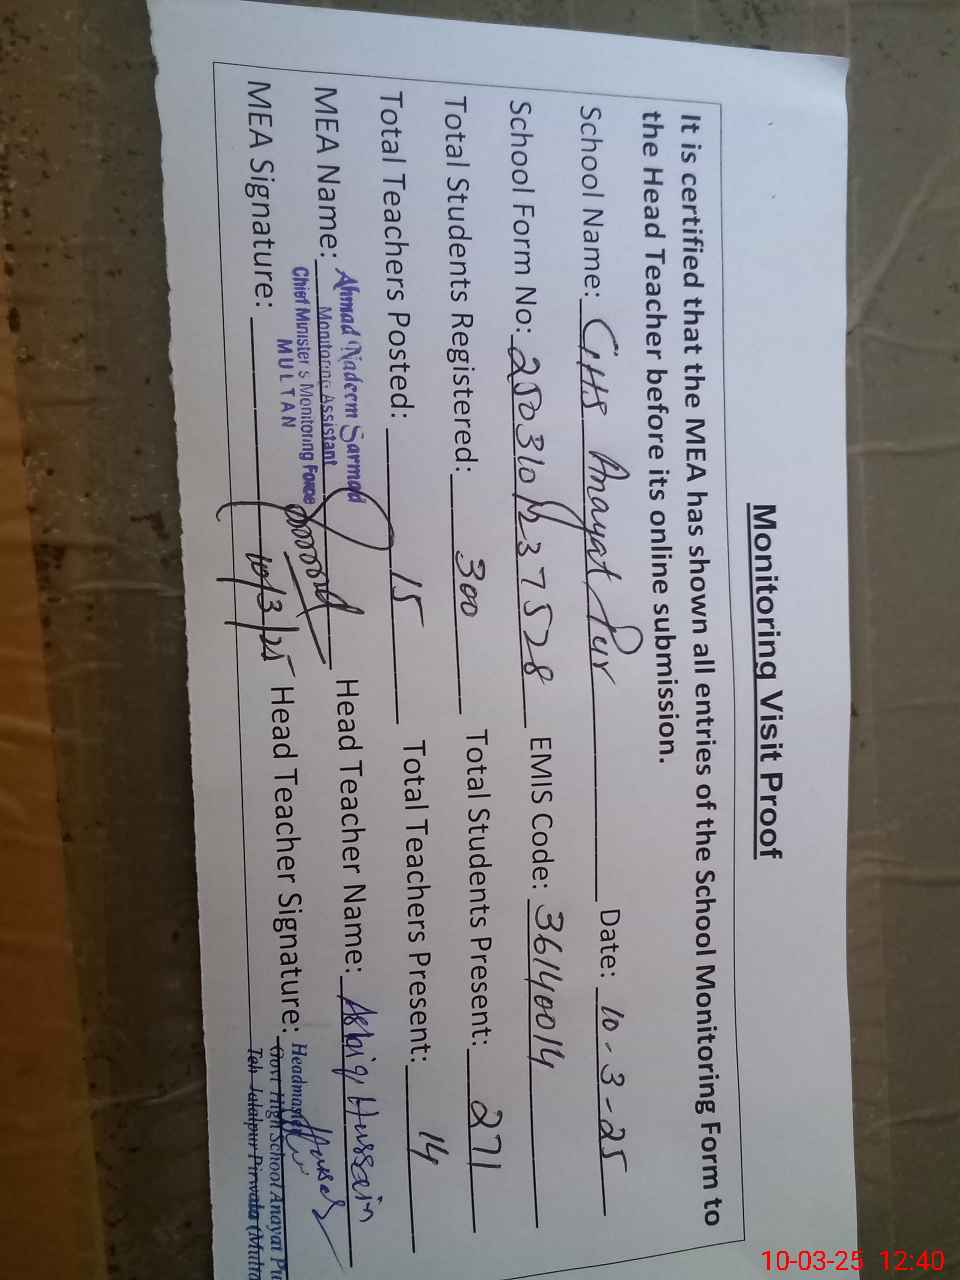 Monitoring Visit Proof
It is certified that the MEA has shown all entries of the School Monitoring Form to
the Head Teacher before its online submission.
School Name: GHS Anayat Pur Date: 10-3-25
School Form No: 250310 237528 EMIS Code: 36140014
Total Students Registered: 300 Total Students Present: 271
Total Teachers Posted: 15 Total Teachers Present: 14
MEA Name: Ahmad Nadeem Sarmad Head Teacher Name: Ashiq Hussain
Monitoring Assistant
Chief Minister's Monitoring Force
MULTAN
MEA Signature: 10/3/25 Head Teacher Signature:
Headmaster
Govt High School Anayat Pu
Teh Jalalpur Pirwala (Multa
10-03-25 12:40